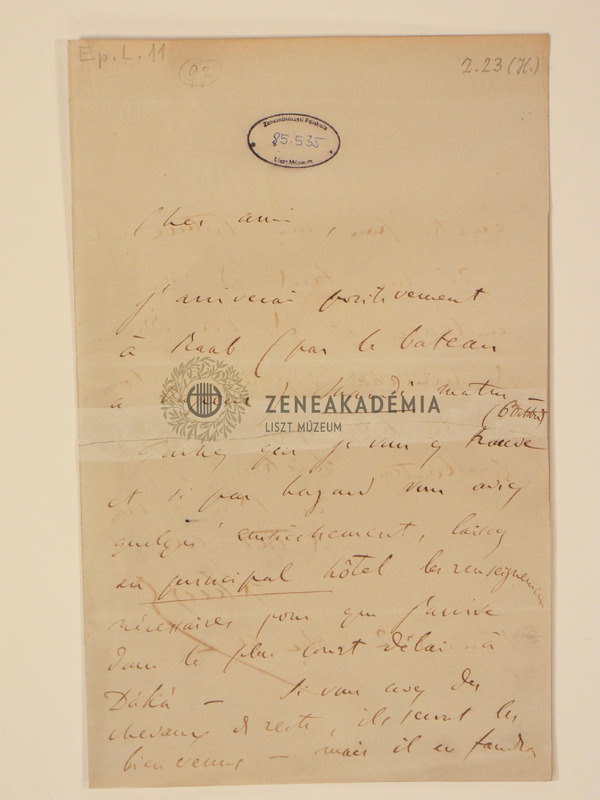 Ep. L. 11
2.23 (H.)
Zeneművészeti Főiskola
85.535
Liszt Múzeum
Cher ami,
j'arriverai positivement
à Raab (par le bateau
à matin
(6 Octobre)
que je vous y trouve
et si par hazard vous aviez
quelqu' empêchement, laissez
au principal hôtel les renseignemens
nécessaires pour que j'arrive
dans le plus court délai à
Dáká – Si vous avez des
chevaux de reste, ils seront les
bien venus – mais il en faudra
ZENEAKADÉMIA
LISZT MÚZEUM